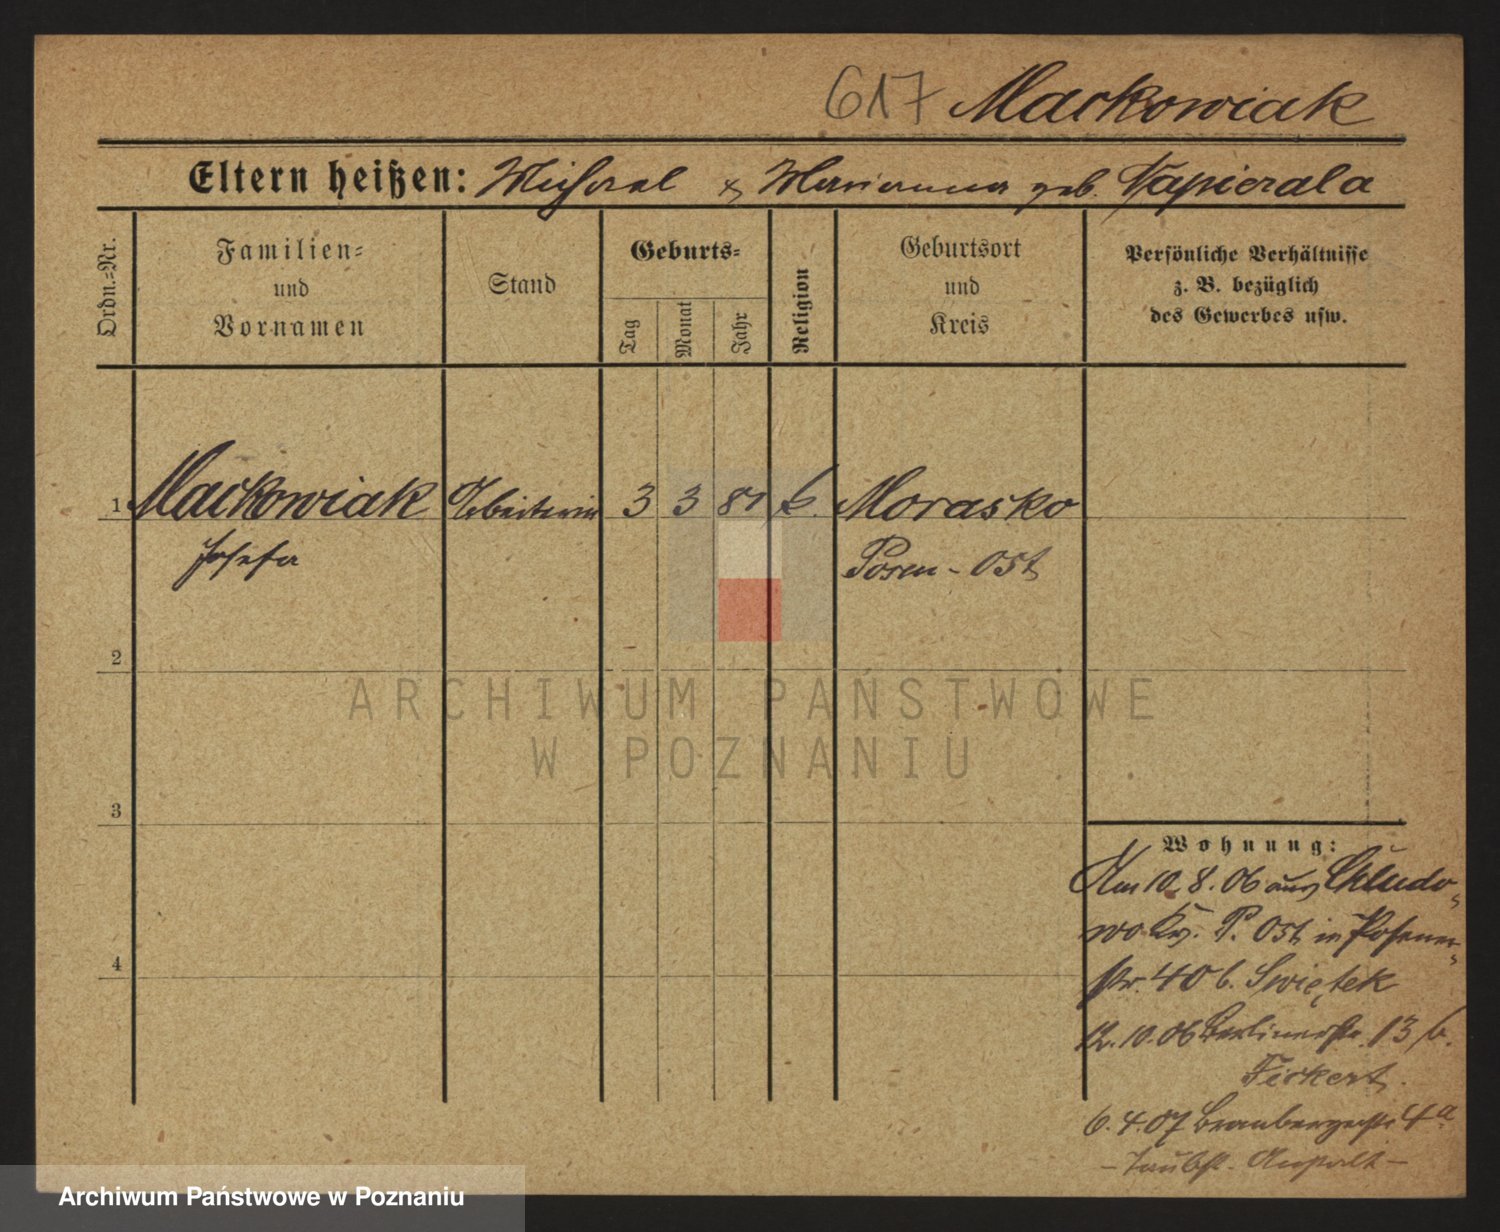 617 Mackowiak
Eltern heißen: Michael & Marianna geb. Papierala
Ordn.=Nr.
Familien=
und
Vornamen
Stand
Geburts=
Tag
Monat
Jahr
Religion
Geburtsort
und
Kreis
Persönliche Verhältnisse
z. B. bezüglich
des Gewerbes usw.
1 Mackowiak Arbeiterin 3 3 81 k. Morasko
Josefa Posen-Ost
2
ARCHIWUM PAŃSTWOWE
W POZNANIU
3
Wohnung:
Am 10.8.06 aus Chludo-
wo Kr. P. Ost in Posener-
str. 40 b. Swiętek
12.10.06 Berlinerstr. 13 b.
Fickert.
4
6.4.07 Brombergerstr 4a
- Taubst. Anstalt -
Archiwum Państwowe w Poznaniu